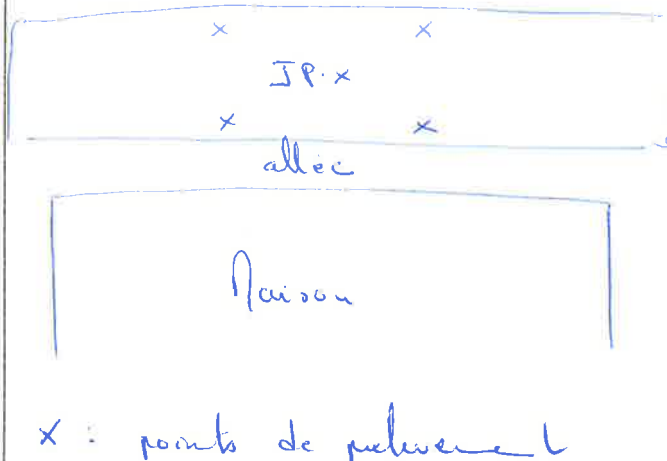 x x
JP. x
x x
allée
Maison
x : points de prélèvement